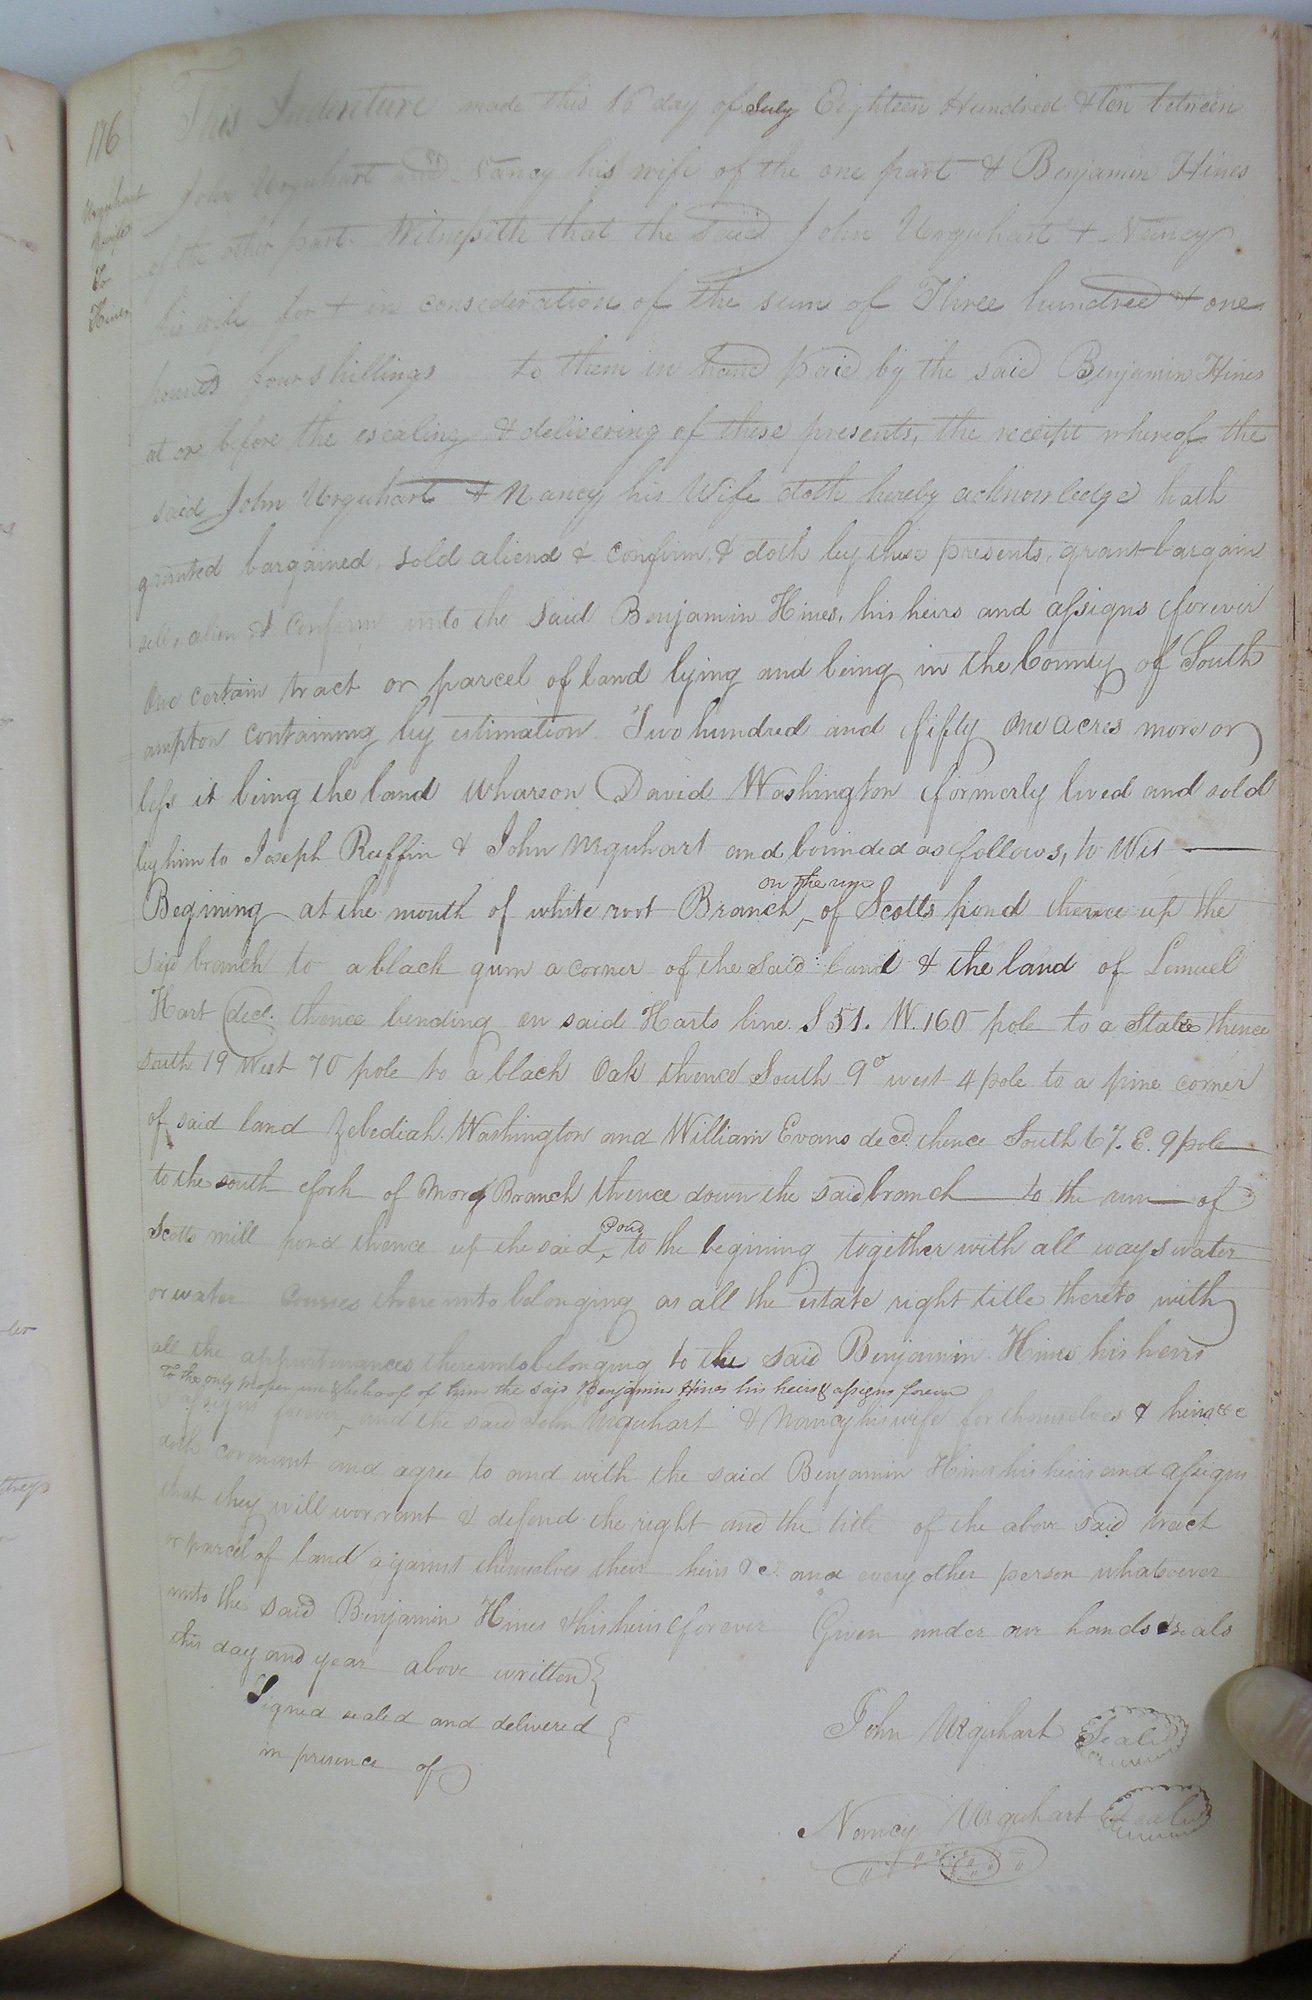 176
Urquhart
& wife
To
Hines
This Indenture made this 16 day of July Eighteen Hundred & ten between
John Urquhart and Nancy his wife of the one part & Benjamin Hines
of the other part. Witnesseth that the said John Urquhart & Nancy
his wife for & in consideration of the sum of Three hundred & one
pounds four shillings to them in hand paid by the said Benjamin Hines
at or before the esealing & delivering of these presents, the receipt whereof the
said John Urquhart & Nancy his Wife doth hereby acknowledge hath
granted bargained, sold aliend & confirm, & doth by these presents, grant bargain
sell, alien & confirm unto the said Benjamin Hines, his heirs and assigns forever
One certain tract or parcel of land lying and being in the County of South
ampton containing by estimation Two hundred and fifty one acres more or
less it being the land wharson David Washington formerly lived and sold
by him to Joseph Ruffin & John Urquhart and bounded as follows, to Wit
on the run
Begining at the mouth of white root Branch of Scotts pond thence up the
said branch to a black gum a corner of the said land & the land of Lemuel
Hart decd. thence bending on said Harts line S 51. W. 160 pole to a Stake thence
south 19 West 70 pole to a black Oak thence South 9° west 4 pole to a pine corner
of said land Zebediah Washington and William Evans decd. thence South 67. E. 9 pole
to the south fork of Branch thence down the said branch to the run of
Pond
Scotts mill pond thence up the said to the begining together with all ways water
or water courses thereunto belonging as all the estate right title thereto with
all the appurtenances thereunto belonging to the said Benjamin Hines his heirs
To the only proper use & behoof of him the said Benjamin Hines his heirs & assigns forever
& assigns forever and the said John Urquhart & Nancy his wife for themselves & heirs &c
doth covenant and agree to and with the said Benjamin Hines his heirs and assigns
that they will warrant & defend the right and the title of the above said tract
or parcel of land against themselves their heirs &c. and every other person whatever
unto the said Benjamin Hines & his heirs forever Given under our hands & seals
this day and year above written
Signed sealed and delivered
in presence of
John Urquhart Seal
Nancy Urquhart Seal